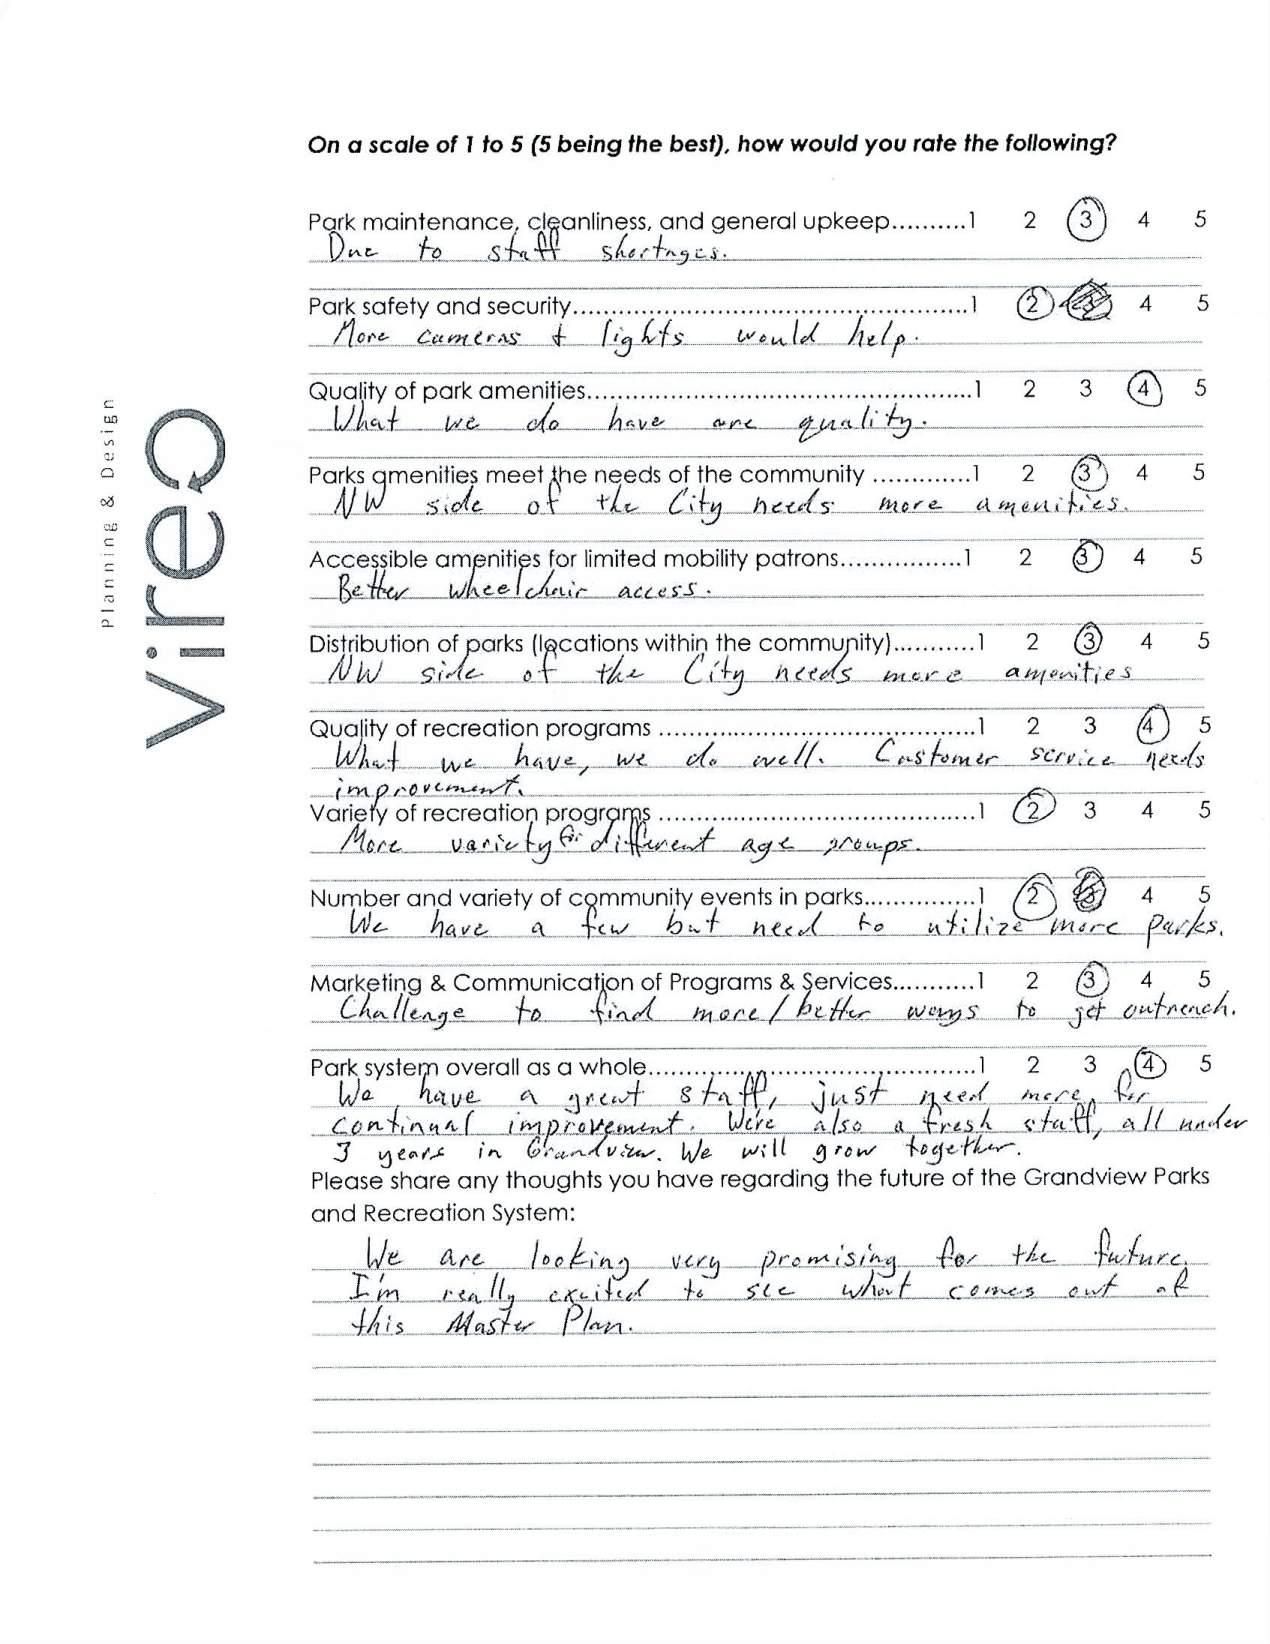 On a scale of 1 to 5 (5 being the best), how would you rate the following?
Park maintenance, cleanliness, and general upkeep..........1 2 3 4 5
Due to staff shortages.
Park safety and security.................................................1 2 3 4 5
More cameras + lights would help.
Quality of park amenities................................................1 2 3 4 5
What we do have are quality.
Parks amenities meet the needs of the community .............1 2 3 4 5
NW side of the City needs more amenities.
Accessible amenities for limited mobility patrons................1 2 3 4 5
Better wheelchair access.
Distribution of parks (locations within the community)...........1 2 3 4 5
NW side of the City needs more amenities
Quality of recreation programs ........................................1 2 3 4 5
What we have, we do well. Customer service needs
improvement.
Variety of recreation programs ........................................1 2 3 4 5
More variety for different age groups.
Number and variety of community events in parks...............1 2 3 4 5
We have a few but need to utilize more parks.
Marketing & Communication of Programs & Services...........1 2 3 4 5
Challenge to find more/better ways to get outreach.
Park system overall as a whole.........................................1 2 3 4 5
We have a great staff, just need more for
continual improvement. We're also a fresh staff, all under
3 years in Grandview. We will grow together.
Please share any thoughts you have regarding the future of the Grandview Parks
and Recreation System:
We are looking very promising for the future.
I'm really excited to see what comes out of
this Master Plan.
vireo
Planning & Design